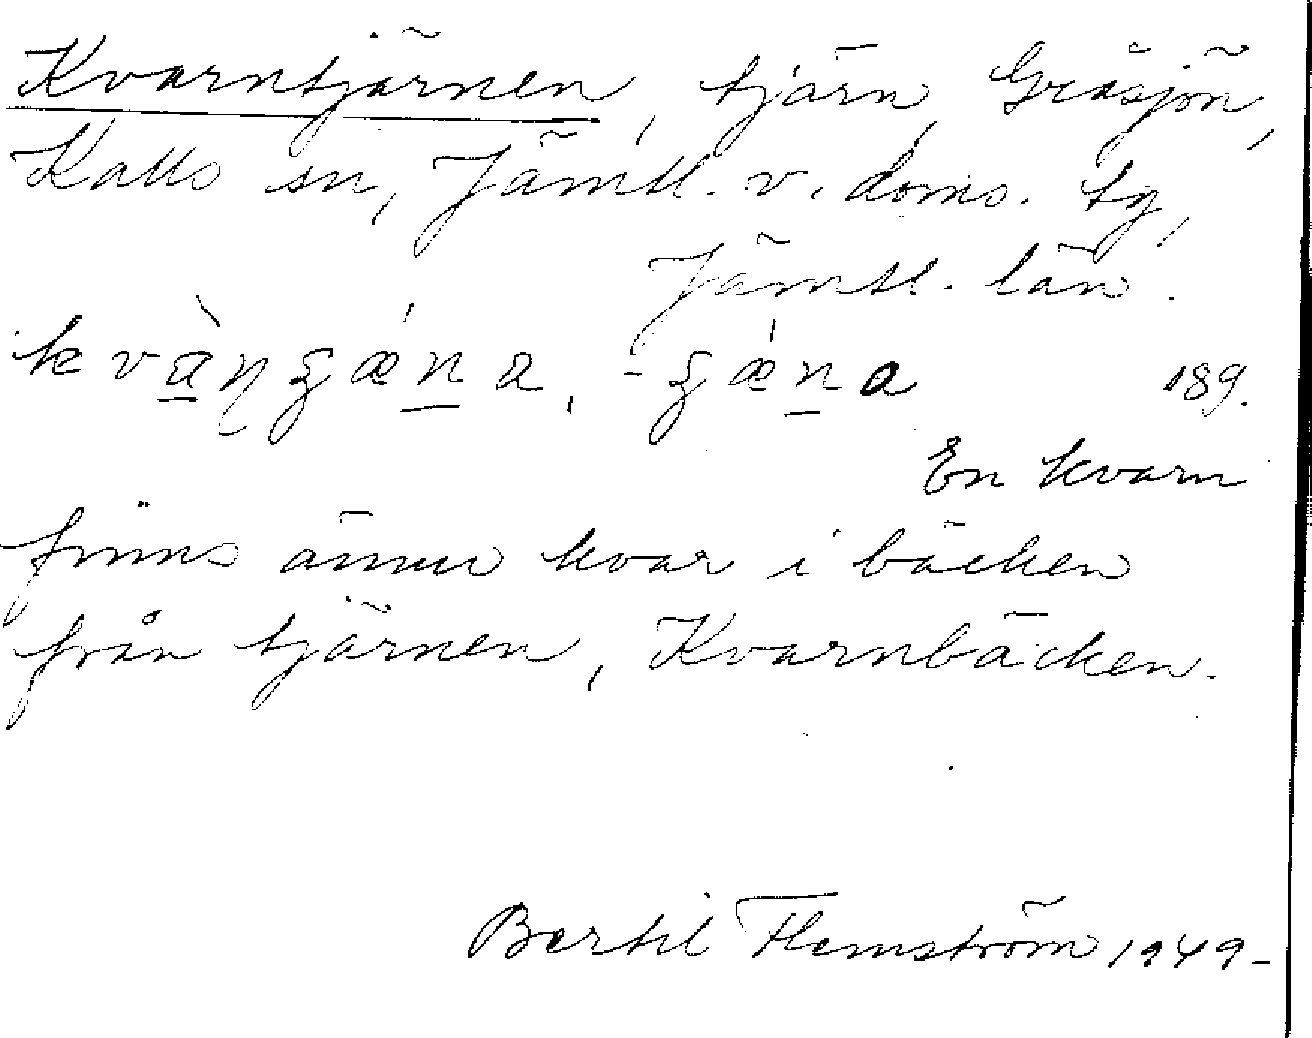 Kvarntjärnen, tjärn, Gråsjön,
Kalls sn, Jämtl. v. doms. tg,
Jämtl. län.
189.
En kvarn
finns ännu kvar i bäcken
från tjärnen, Kvarnbäcken.
Bertil Flemström 1949-